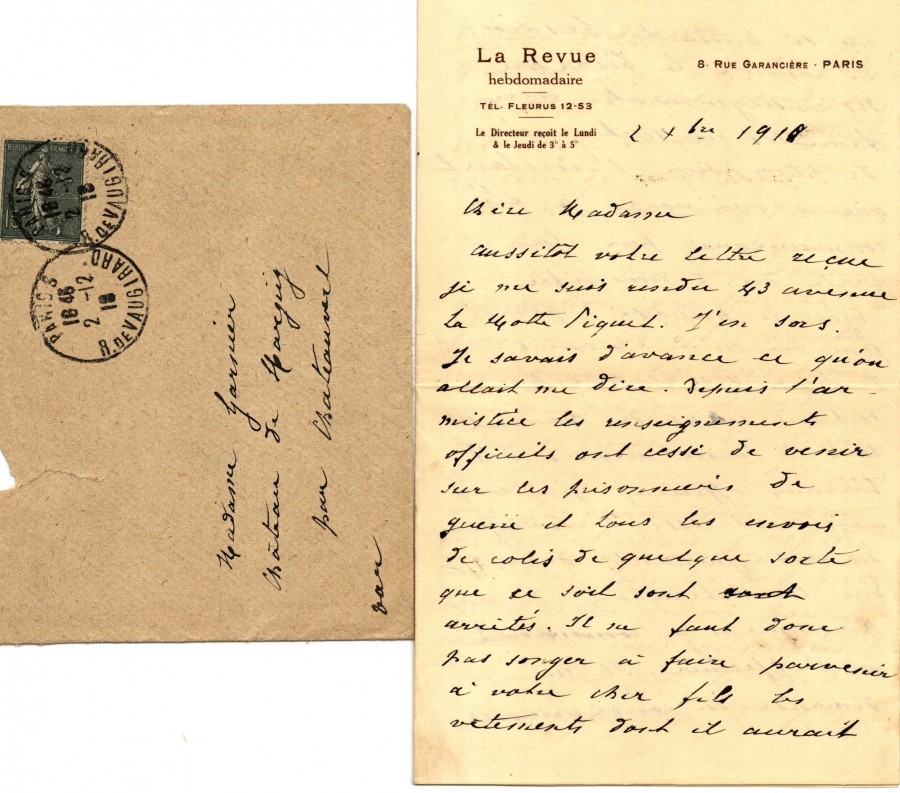 REPUBLIQUE FRANCAISE
PARIS 6
18 45
2 -12
18
R. DE VAUGIRARD
PARIS 6
18 45
2 -12
18
R. DE VAUGIRARD
Madame Garnier
Château de
par Chateauvert
Var
La Revue
hebdomadaire
TÉL. FLEURUS 12-53
Le Directeur reçoit le Lundi
& le Jeudi de 3h à 5h
8. RUE GARANCIÈRE - PARIS
2 Xbre 1918
Chère Madame
aussitôt votre lettre reçue
je me suis rendu 43 avenue
La Motte Piquet. J'en sors.
Je savais d'avance ce qu'on
allait me dire. Depuis l'ar-
mistice les renseignements
officiels ont cessé de venir
sur les prisonniers de
guerre et tous les envois
de colis de quelque sorte
que ce soit sont sont
arrêtés. Il ne faut donc
pas songer à faire parvenir
à votre cher fils les
vetements dont il aurait